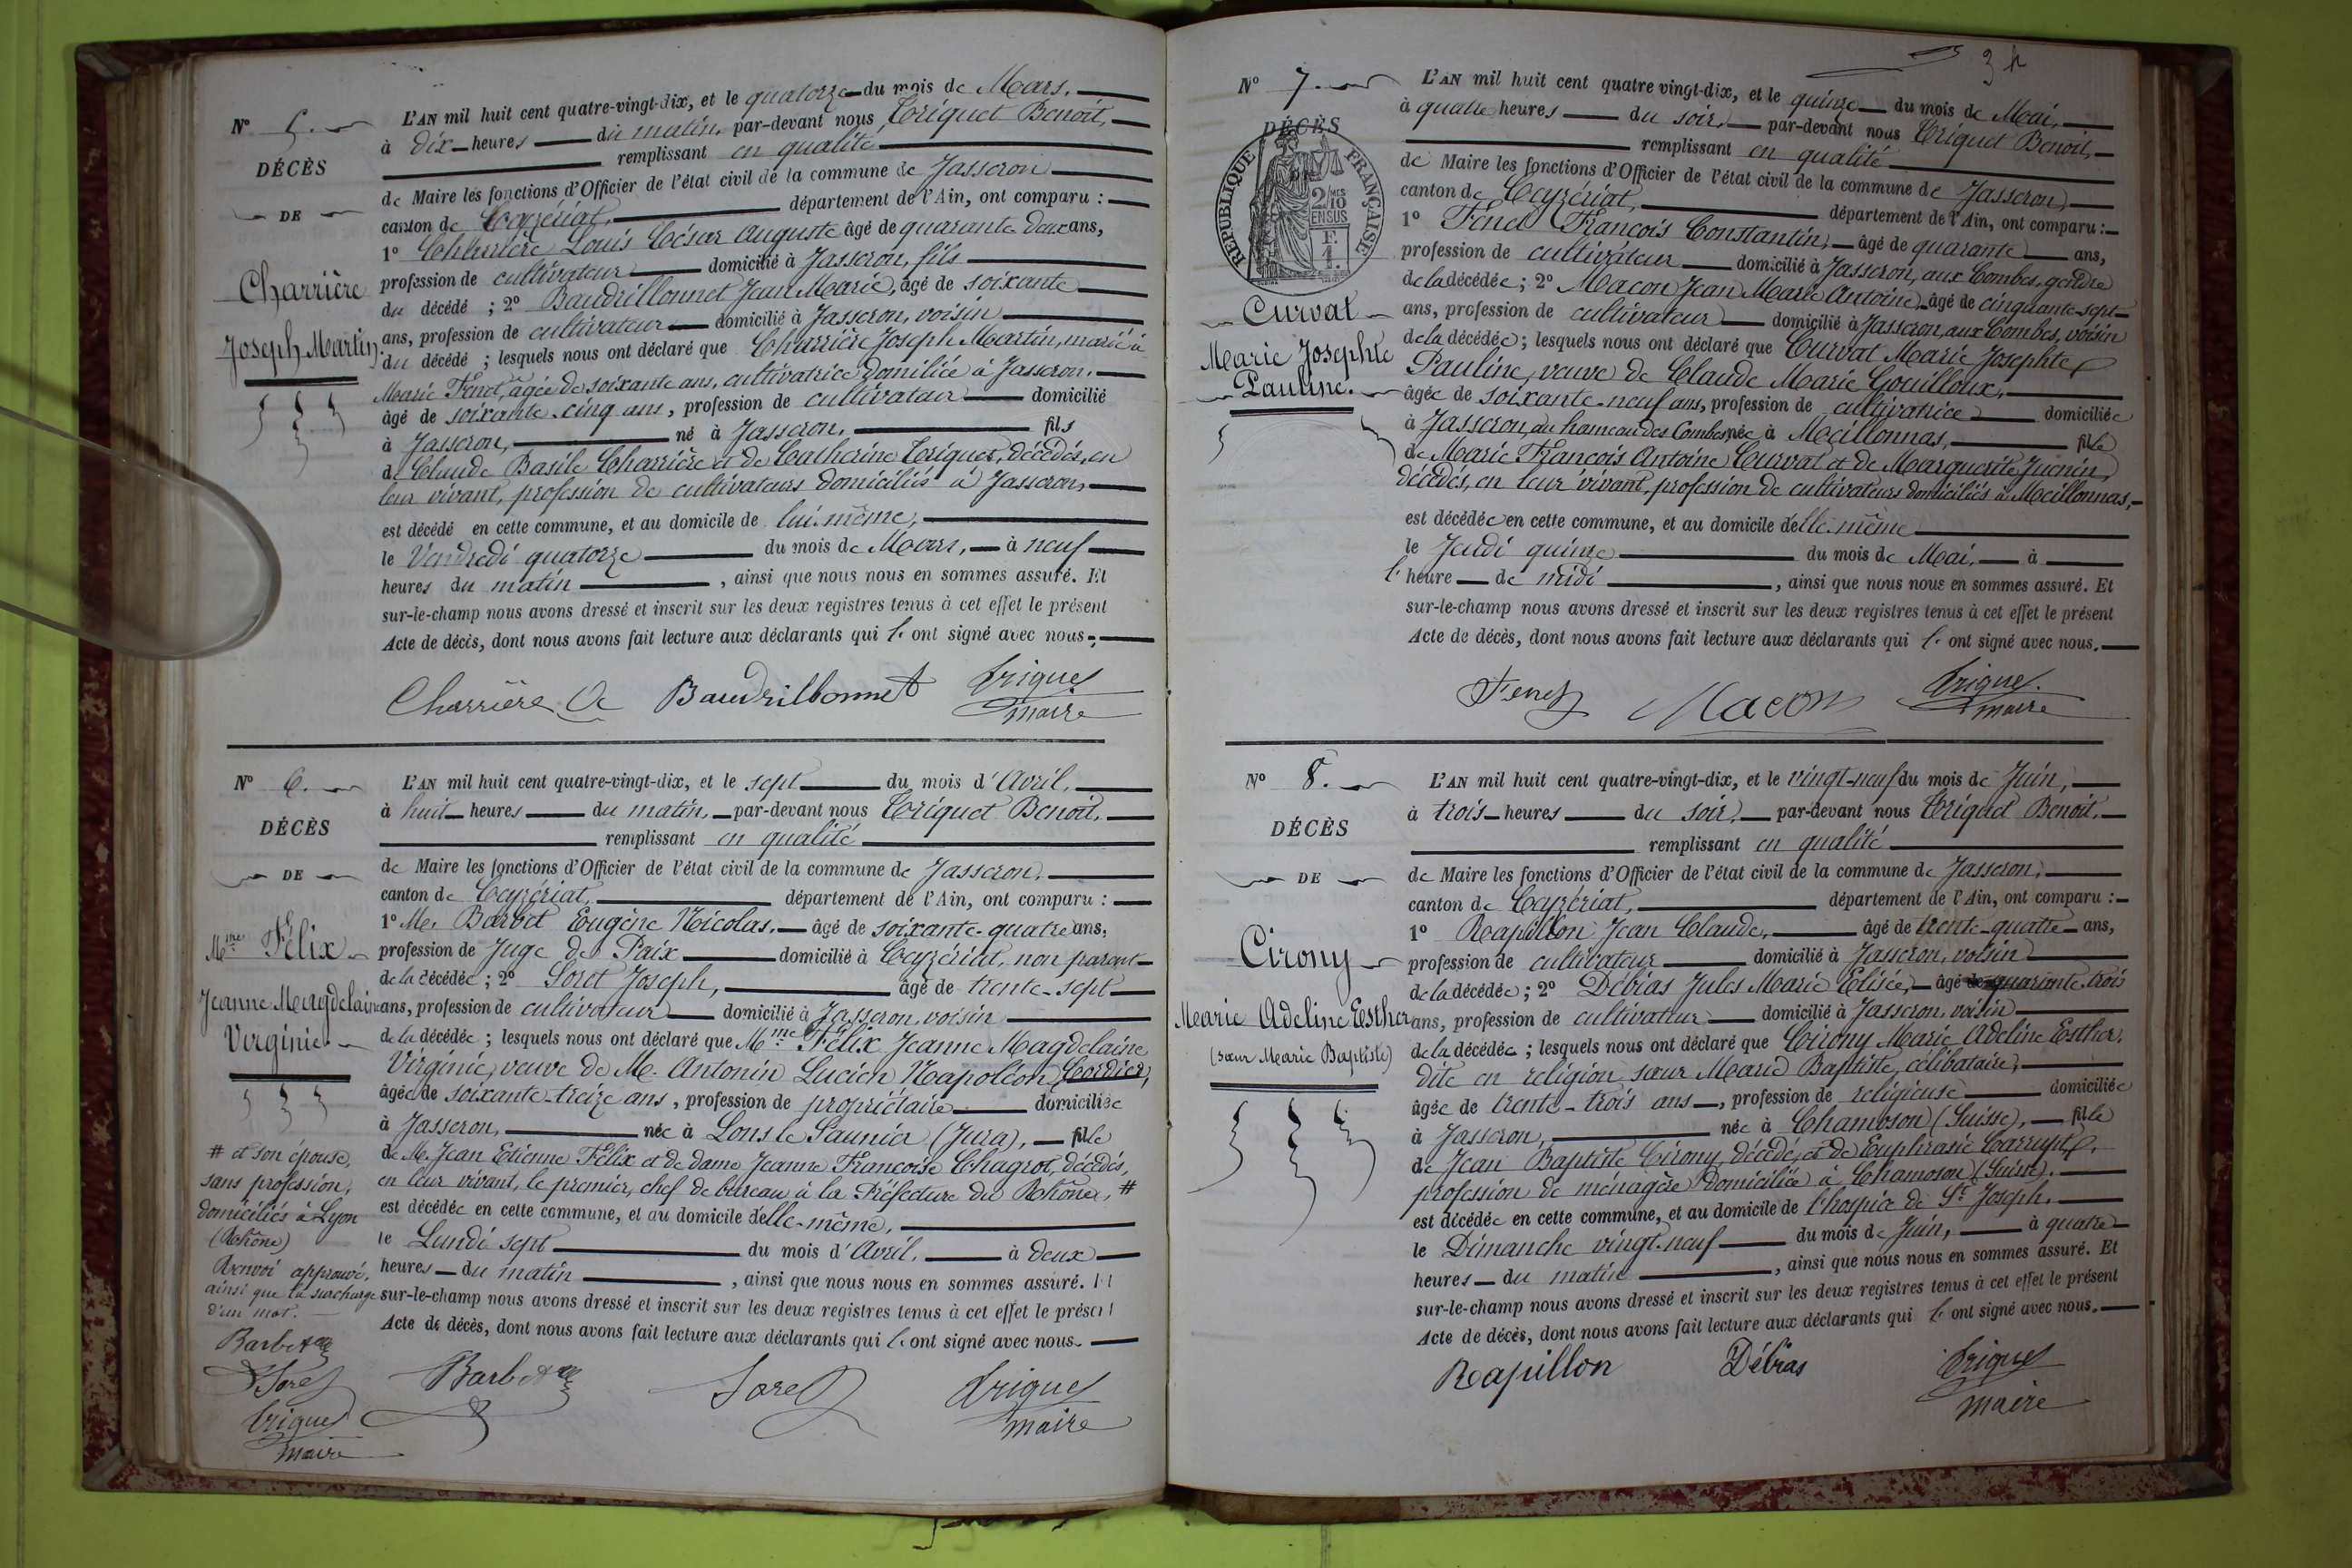 N° 5.
DÉCÈS
DE
Charrière
Joseph Martin.
L'AN mil huit cent quatre-vingt-dix, et le quatorze du mois de Mars,
à dix heures du matin, par-devant nous Triquet Benoit,
remplissant en qualité
de Maire les fonctions d'Officier de l'état civil de la commune de Jasseron
canton de Ceyzériat, département de l'Ain, ont comparu :
1° Charrière Louis César Auguste âgé de quarante deux ans,
profession de cultivateur domicilié à Jasseron, fils
du décédé ; 2° Baudrillonnet Jean Marie, âgé de soixante
ans, profession de cultivateur domicilié à Jasseron, voisin
du décédé ; lesquels nous ont déclaré que Charrière Joseph Martin, marié à
Marie Fenet, âgée de soixante ans, cultivatrice domiliée à Jasseron.
âgé de soixante-cinq ans, profession de cultivateur domicilié
à Jasseron, né à Jasseron, fils
de Claude Basile Charrière et de Catherine Triquet, décédés, en
leur vivant, profession de cultivateurs domiciliés à Jasseron,
est décédé en cette commune, et au domicile de lui-même,
le Vendredi quatorze du mois de Mars, à neuf
heures du matin , ainsi que nous nous en sommes assuré. Et
sur-le-champ nous avons dressé et inscrit sur les deux registres tenus à cet effet le présent
Acte de décès, dont nous avons fait lecture aux déclarants qui l'ont signé avec nous.
Charrière Baudrillonnet Triquet
maire
N° 6.
DÉCÈS
DE
Mme Félix
Jeanne Magdelaine
Virginie
L'AN mil huit cent quatre-vingt-dix, et le sept du mois d'Avril,
à huit heures du matin, par-devant nous Triquet Benoit,
remplissant en qualité
de Maire les fonctions d'Officier de l'état civil de la commune de Jasseron,
canton de Ceyzériat, département de l'Ain, ont comparu :
1° Me. Barbet Eugène Nicolas, âgé de soixante-quatre ans,
profession de Juge de Paix domicilié à Ceyzériat, non parent
de la décédée ; 2° Soret Joseph, âgé de trente-sept
ans, profession de cultivateur domicilié à Jasseron, voisin
de la décédée ; lesquels nous ont déclaré que Mme Félix Jeanne Magdelaine
Virginie, veuve de M. Antonin Lucien Napoléon Cordier,
âgée de soixante-treize ans, profession de propriétaire domiciliée
à Jasseron, née à Lons le Saunier (Jura), fille
de M. Jean Etienne Félix et de dame Jeanne Françoise Chagrot, décédés,
en leur vivant, le premier, chef de bureau à la Préfecture du Rhône, #
est décédée en cette commune, et au domicile d'elle-même,
le Lundi sept du mois d'Avril, à deux
heures du matin , ainsi que nous nous en sommes assuré. Et
sur-le-champ nous avons dressé et inscrit sur les deux registres tenus à cet effet le présent
Acte de décès, dont nous avons fait lecture aux déclarants qui l'ont signé avec nous.
# et son épouse,
sans profession,
domiciliés à Lyon
(Rhône)
Renvoi approuvé,
ainsi que la surcharge
d'un mot.
Barbet
Soret
Triquet
maire
Barbet Soret Triquet
maire
34
N° 7.
DÉCÈS
RÉPUBLIQUE FRANÇAISE
2/10
MES
EN SUS
F.
1.
Curvat
Marie Josephte
Pauline.
L'AN mil huit cent quatre vingt-dix, et le quinze du mois de Mai,
à quatre heures du soir, par-devant nous Triquet Benoit,
remplissant en qualité
de Maire les fonctions d'Officier de l'état civil de la commune de Jasseron,
canton de Ceyzériat, département de l'Ain, ont comparu :
1° Fenet François Constantin, âgé de quarante ans,
profession de cultivateur domicilié à Jasseron, aux Combes, gendre
de la décédée ; 2° Macon Jean Marie Antoine, âgé de cinquante-sept
ans, profession de cultivateur domicilié à Jasseron, aux Combes, voisin
de la décédée ; lesquels nous ont déclaré que Curvat Marie Josephte
Pauline, veuve de Claude Marie Gouilloux,
âgée de soixante-neuf ans, profession de cultivatrice domiciliée
à Jasseron, au hameau des Combes, née à Meillonnas, fille
de Marie François Antoine Curvat et de Marguerite Juenin,
décédés, en leur vivant, profession de cultivateurs domiciliés à Meillonnas,
est décédée en cette commune, et au domicile d'elle-même
le Jeudi quinze du mois de Mai, à
l'heure de midi , ainsi que nous nous en sommes assuré. Et
sur-le-champ nous avons dressé et inscrit sur les deux registres tenus à cet effet le présent
Acte de décès, dont nous avons fait lecture aux déclarants qui l'ont signé avec nous.
Fenet Macon Triquet
maire
N° 8.
DÉCÈS
DE
Cirony
Marie Adeline Esther
(sœur Marie Baptiste)
L'AN mil huit cent quatre-vingt-dix, et le vingt-neuf du mois de Juin,
à trois heures du soir, par-devant nous Triquet Benoit,
remplissant en qualité
de Maire les fonctions d'Officier de l'état civil de la commune de Jasseron,
canton de Ceyzériat, département de l'Ain, ont comparu :
1° Rapillon Jean Claude, âgé de trente-quatre ans,
profession de cultivateur domicilié à Jasseron, voisin
de la décédée ; 2° Débias Jules Marie Elisée, âgé de quarante trois
ans, profession de cultivateur domicilié à Jasseron, voisin
de la décédée ; lesquels nous ont déclaré que Cirony Marie Adeline Esther,
dite en religion sœur Marie Baptiste, célibataire,
âgée de trente-trois ans, profession de religieuse domiciliée
à Jasseron, née à Chamoson (Suisse), fille
de Jean Baptiste Cirony, décédé, et de Euphrasie Carrupt,
profession de ménagère domiciliée à Chamoson (Suisse).
est décédée en cette commune, et au domicile de l'hospice de St Joseph,
le Dimanche vingt-neuf du mois de Juin, à quatre
heures du matin , ainsi que nous nous en sommes assuré. Et
sur-le-champ nous avons dressé et inscrit sur les deux registres tenus à cet effet le présent
Acte de décès, dont nous avons fait lecture aux déclarants qui l'ont signé avec nous.
Rapillon Débias Triquet
maire